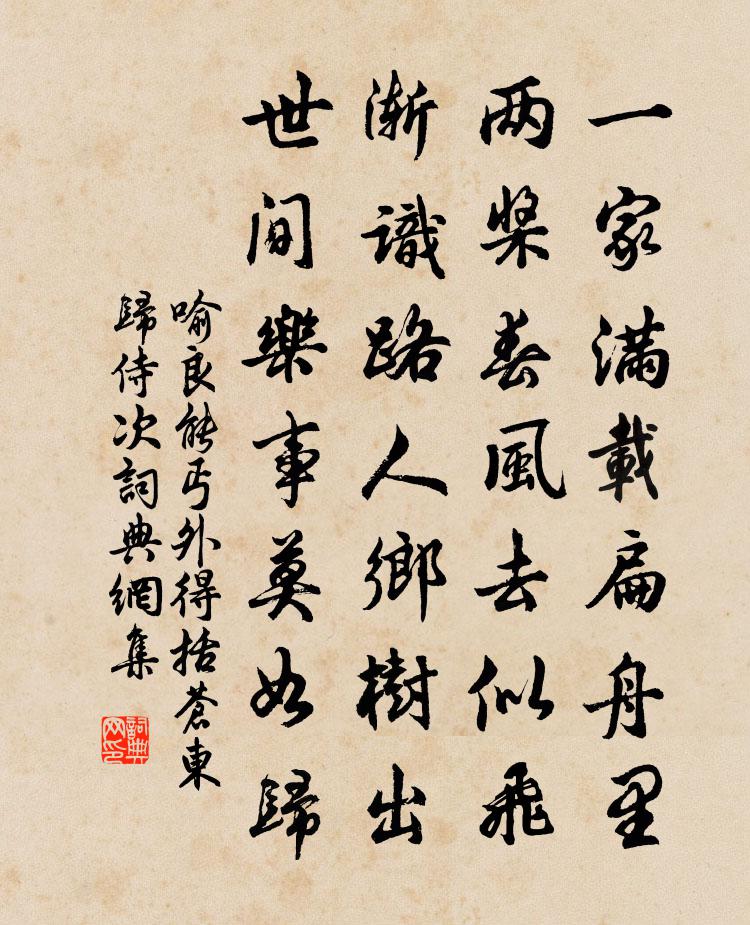 一家滿載扁舟里
兩槳春風去似飛
漸識路人鄉樹出
世間樂事莫如歸
喻良能丐外得括蒼東
歸侍次詞典網集
詞典网印